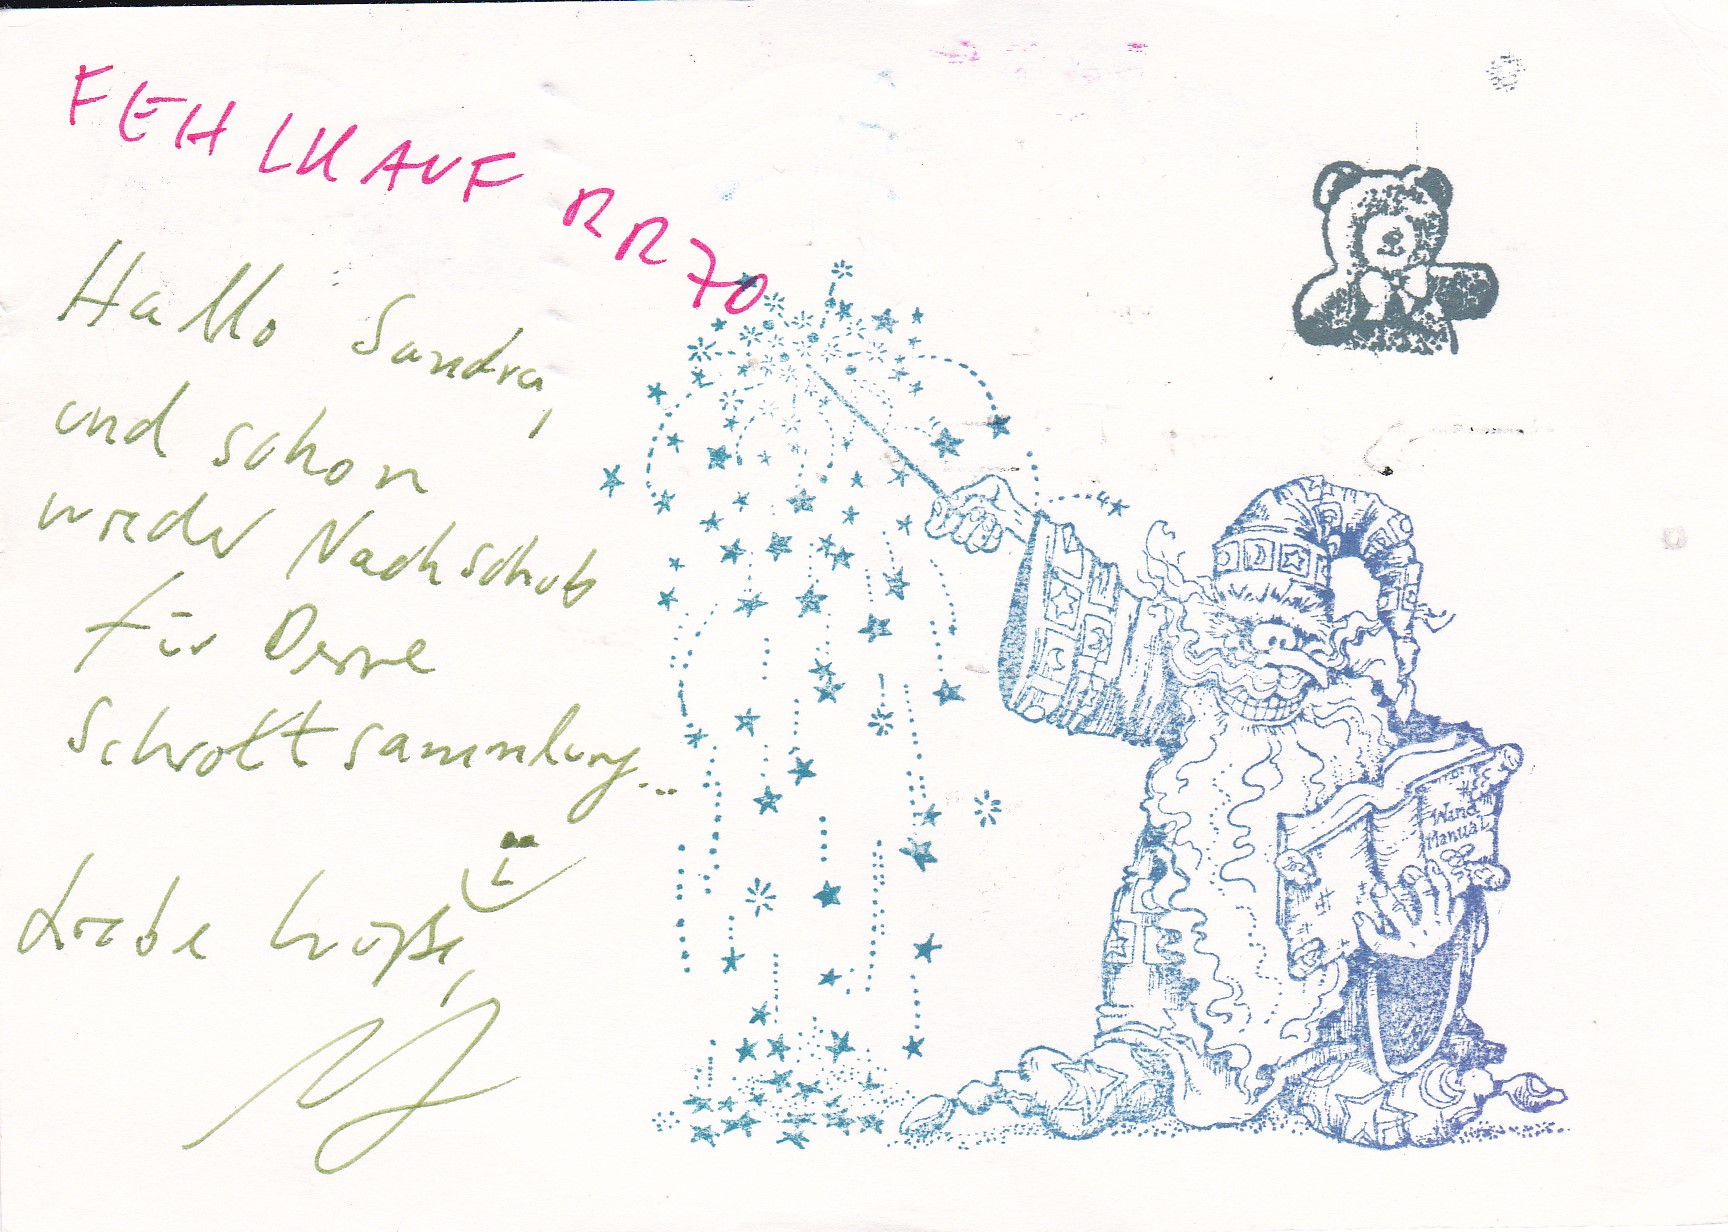 FEHLKAUF RR70
Hallo Sandra,
und schon
wieder Nachschub
für Deine
Schrottsammlung...
Liebe Grüße,
Wand
Manual